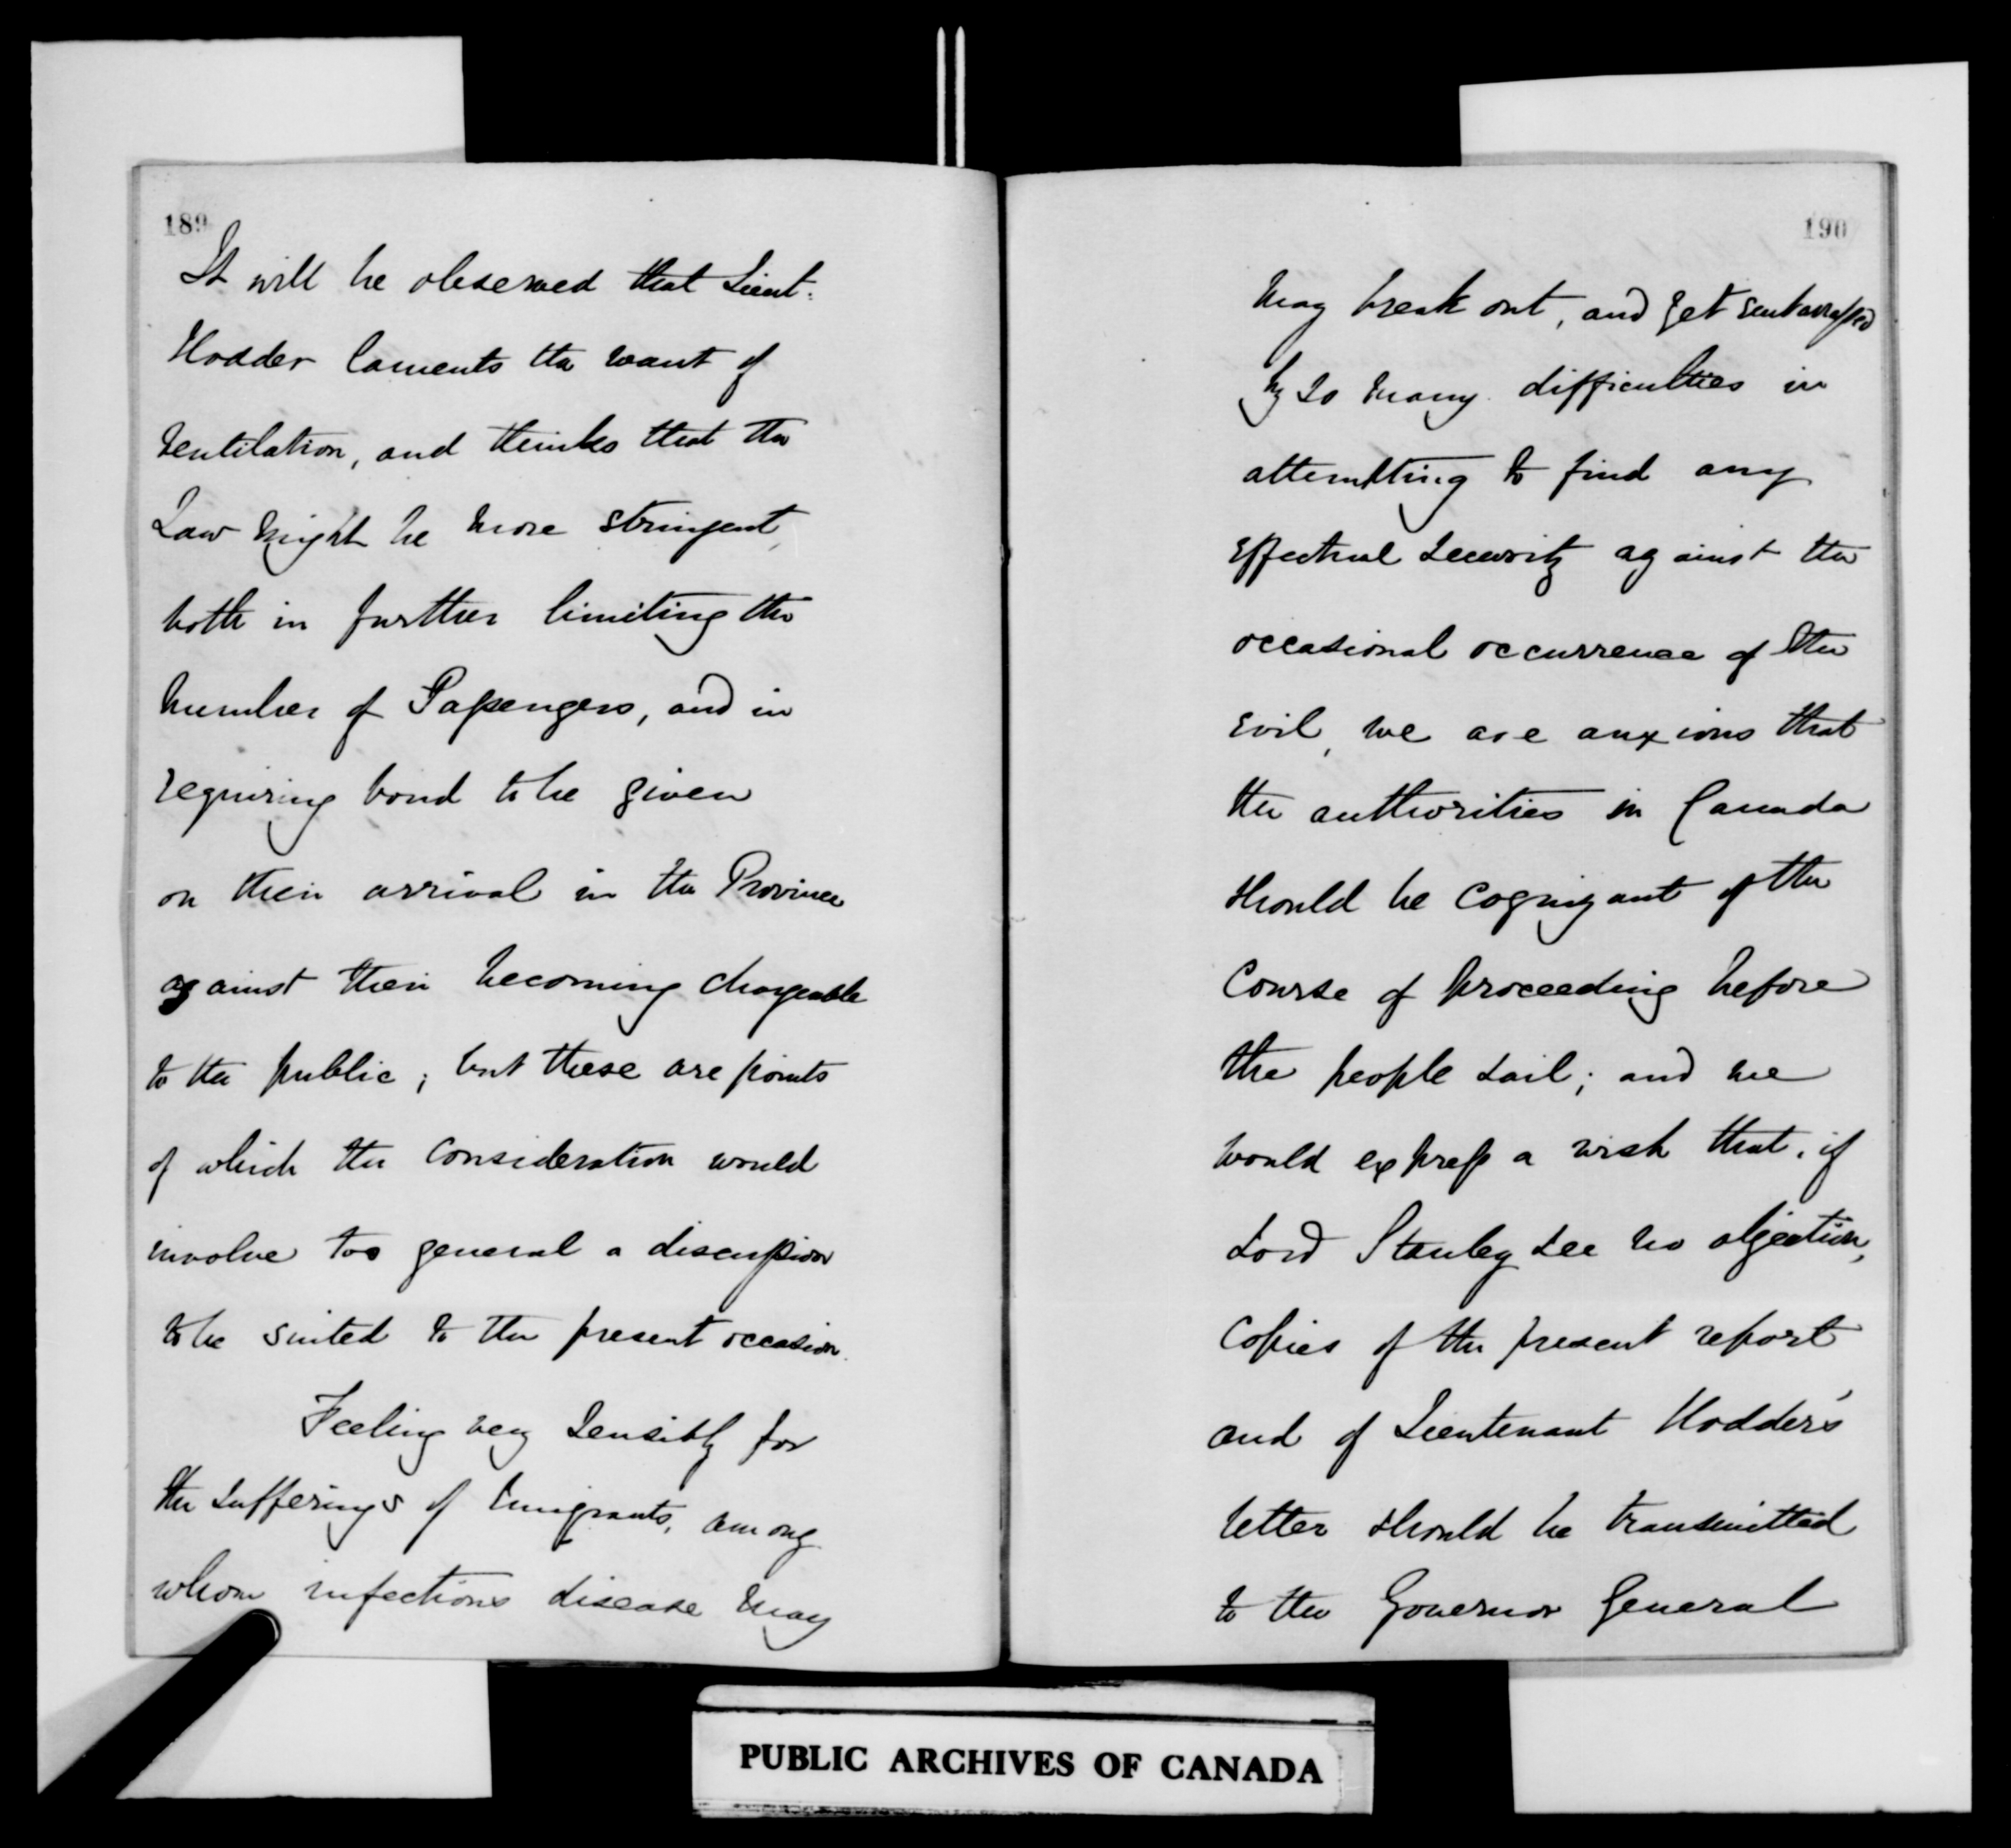 189
It will be observed that Lieut:
Hodder laments the want of
ventilation, and thinks that the
Law might be more stringent,
both in further limiting the
number of Passengers, and in
requiring bond to be given
on their arrival in the Province
against their becoming chargeable
to the public; but these are points
of which the consideration would
involve too general a discussion
to be suited to the present occasion.
Feeling very sensibly for
the sufferings of Emigrants, among
whom infectious disease may
190
may break out, and yet embarrassed
by so many difficulties in
attempting to find any
effectual security against the
occasional occurrence of the
evil, we are anxious that
the authorities in Canada
should be cognizant of the
course of proceeding before
the people sail; and we
would express a wish that, if
Lord Stanley see no objection,
copies of the present report
and of Lieutenant Hodder's
letter should be transmitted
to the Governor General
PUBLIC ARCHIVES OF CANADA